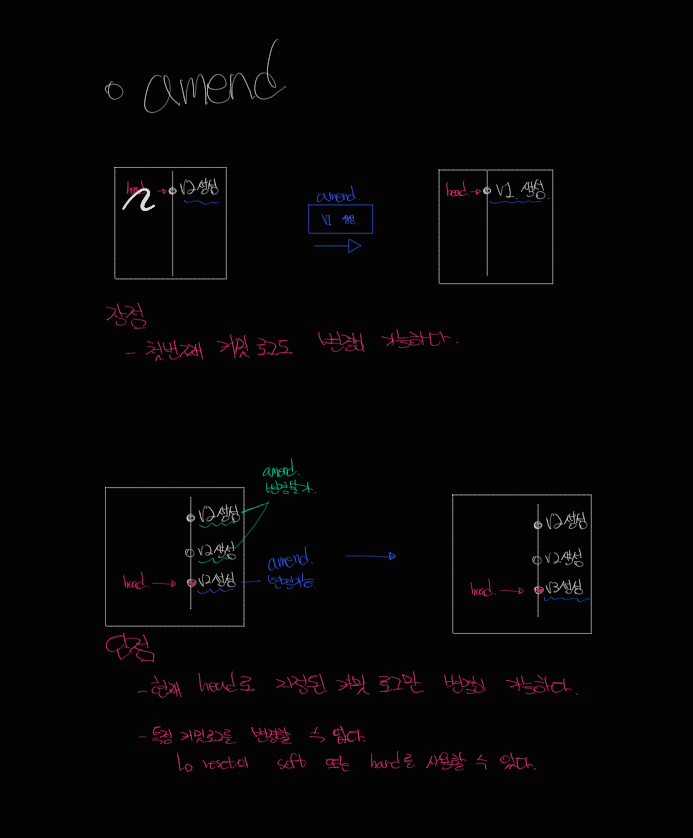 amend
head → V2 생성
amend.
V1 생성.
head → V1. 생성.
장점
- 첫번째 커밋 로그도 변경이 가능하다.
amend.
변경불가.
V2생성
V2생성
head. → V2생성
amend.
변경가능.
V2생성
V2생성
head. → V3생성
단점
- 현재 head로 지정된 커밋 로그만 변경이 가능하다.
- 특정 커밋로그를 변경할 수 없다.
↳ reset의 soft 또는 hard를 사용할 수 있다.